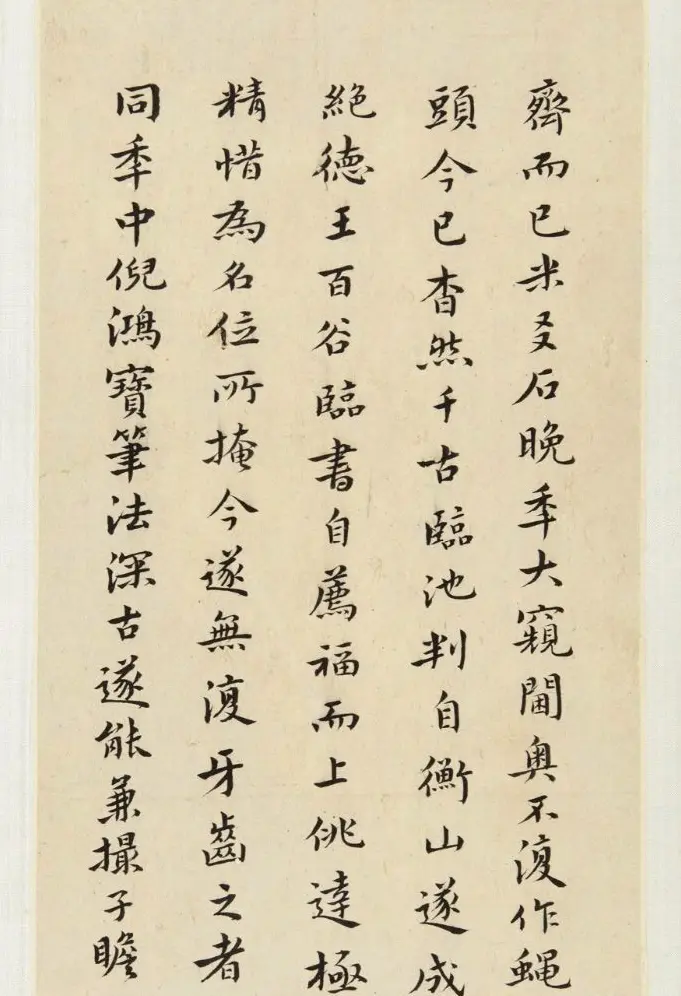 齊而已米叐石晚季大窺閫奥不復作蝇
頭今已杳然千古臨池判自衡山遂成
絕德王百谷臨書自薦福而上佻達極
精惜為名位所掩今遂無復牙齒之者
同季中倪鴻寶筆法深古遂能兼撮子瞻